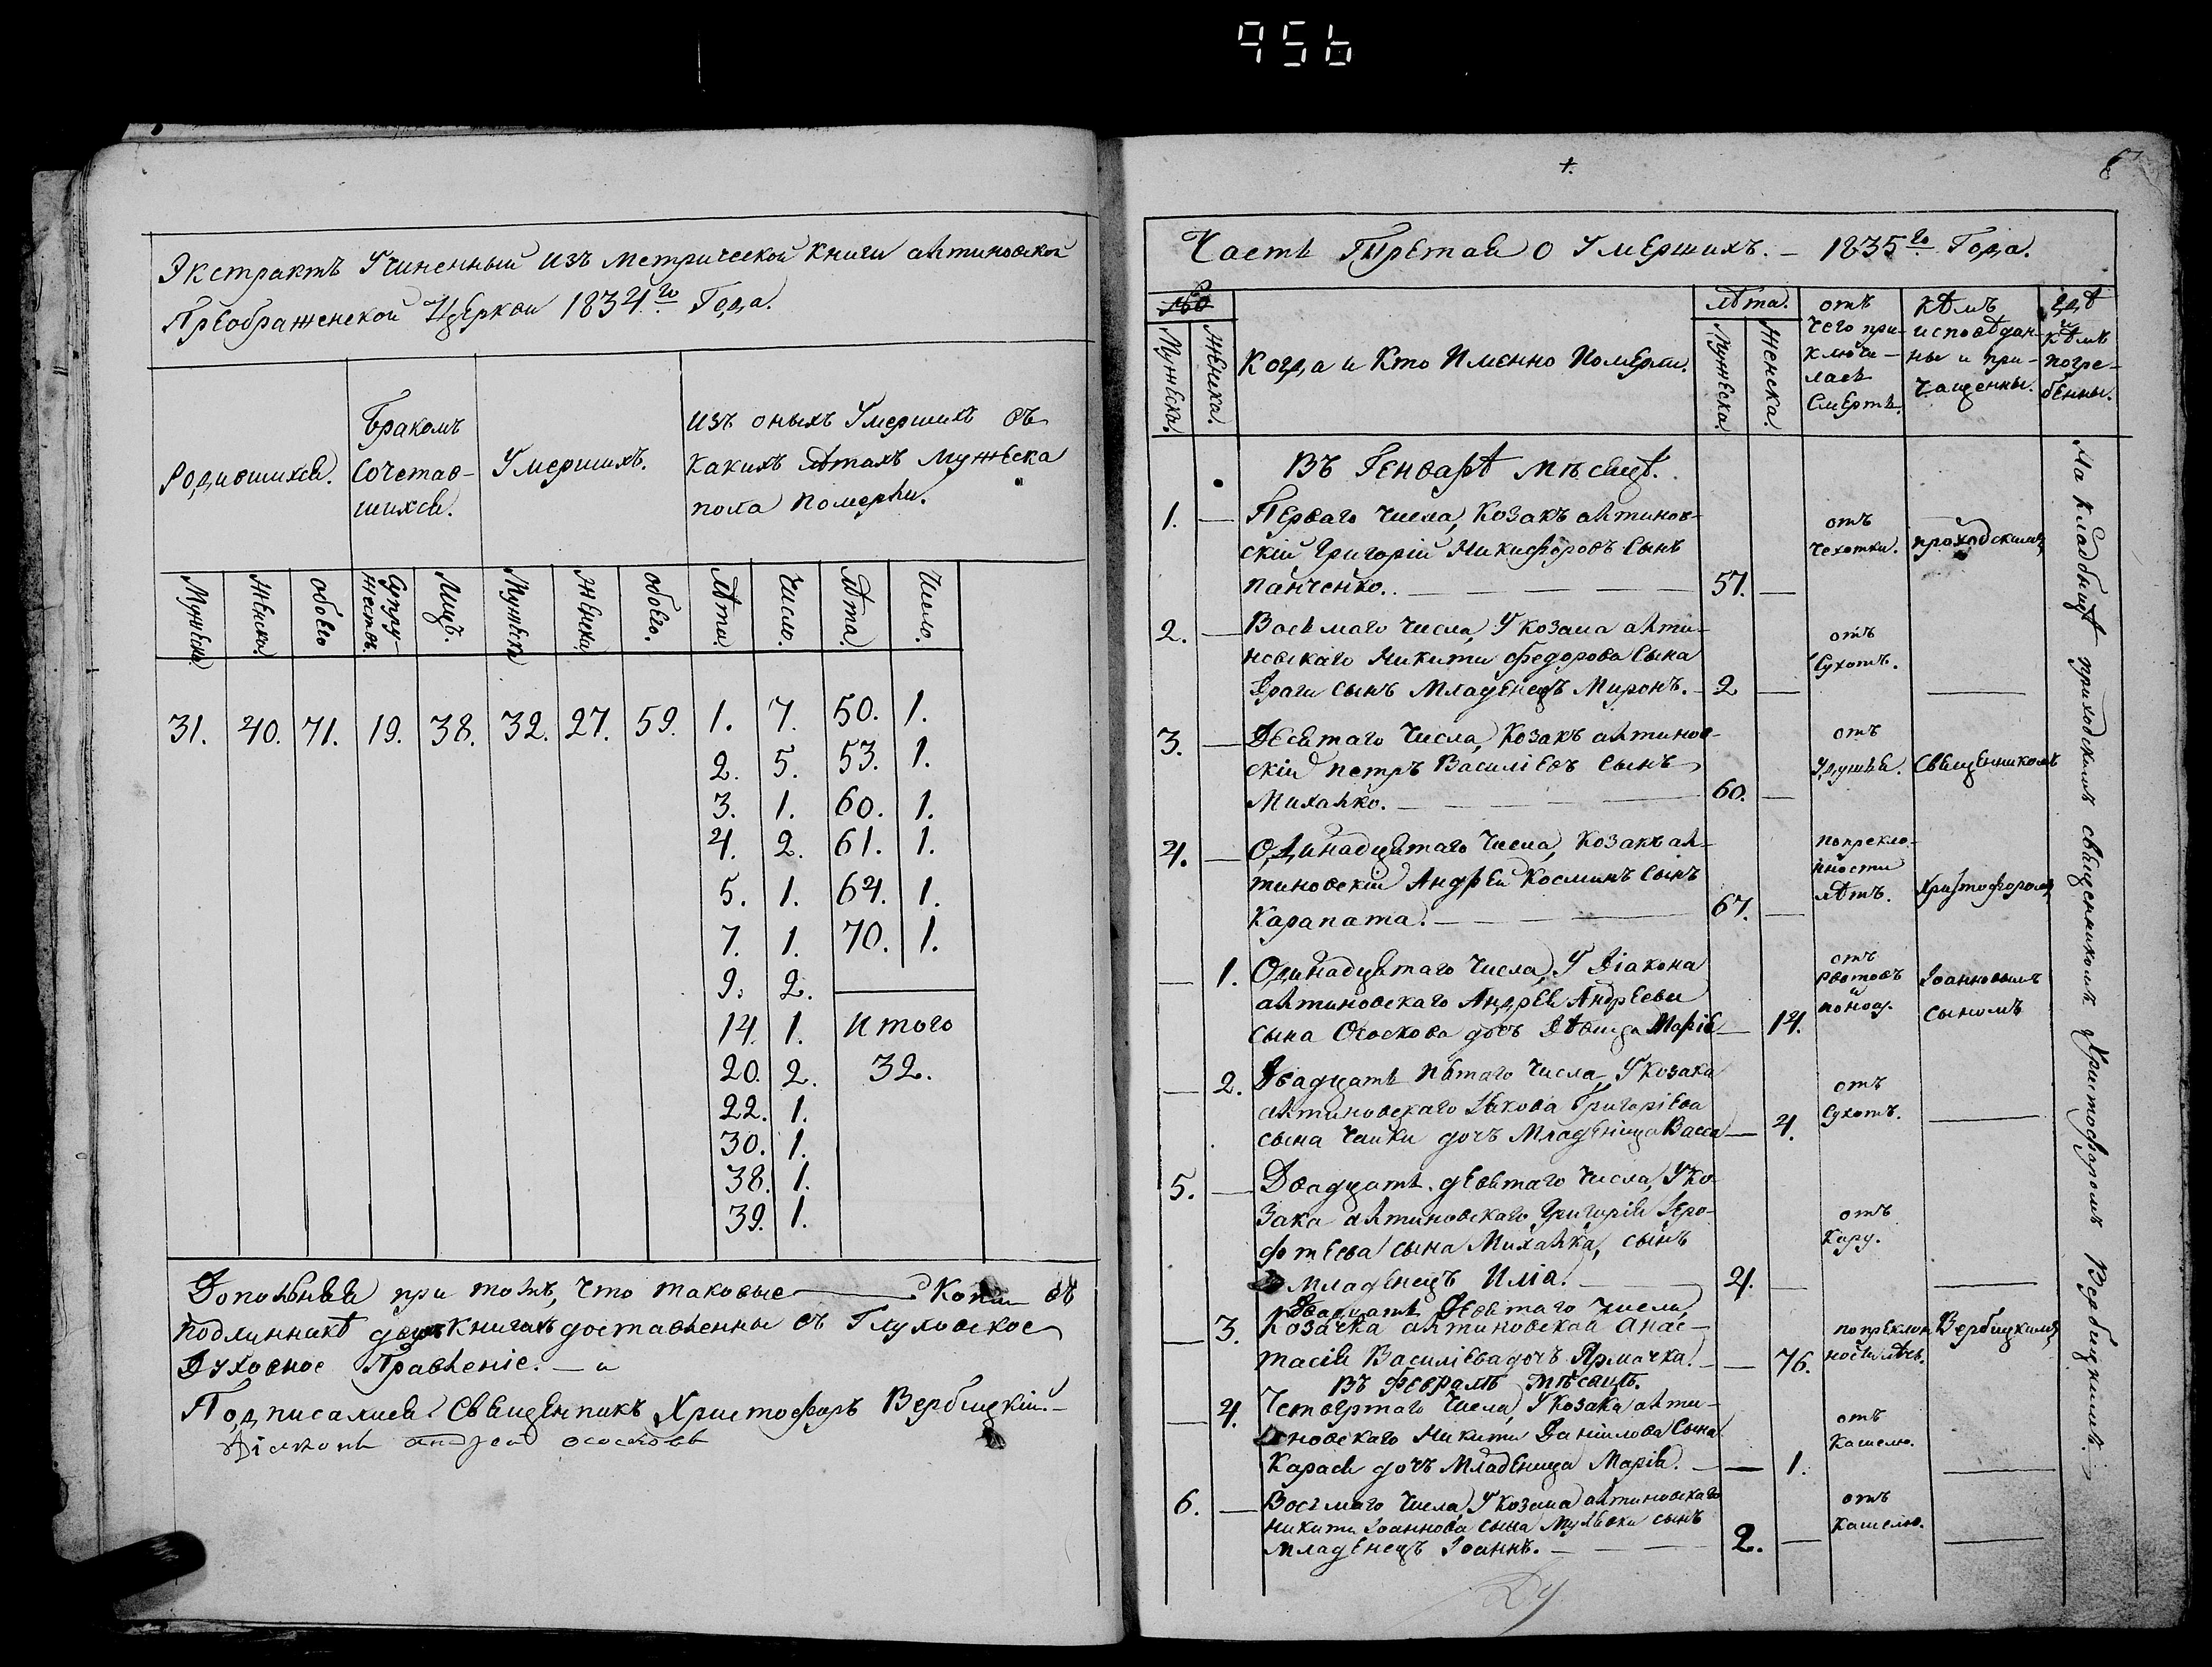 956
Экстрактъ Учиненный изъ метрической книги алтиновской
Преображенской Церкви 1834го Года.
Родившихся.
Бракомъ
Сочетав-
шихся.
Умершихъ.
изъ оныхъ Умершихъ въ
какихъ лѣтахъ мужеска
пола померли.
Мужеска
Женска.
обоего
Супру-
жествъ.
Лицъ.
Мужеска
Женска
обоего.
Лѣта.
Число.
Лѣта
Число.
31. 40. 71. 19. 38. 32. 27. 59. 1. 7. 50. 1.
2. 5. 53. 1.
3. 1. 60. 1.
4. 2. 61. 1.
5. 1. 64. 1.
7. 1. 70. 1.
9. 2.
14. 1. Итого
20. 2. 32.
22. 1.
30. 1.
38. 1.
39. 1.
при томъ, что таковые Копіи въ
подлинникѣ книгахъ доставленны въ Глуховское
Духовное Правленіе. —
Подписались Священникъ Христофоръ Вербицкій. —
Діаконъ Андрей Ососковъ
Часть Третая о Умершихъ. — 1835го Года.
Мужеска.
Женска.
Когда и Кто Именно Померли.
лѣта.
Мужеска.
Женска.
отъ
чего при-
клю чи-
лась
Смерть.
кѣмъ
исповѣдан-
ны и при-
чащенны.
гдѣ
и
кѣмъ
погре-
бенны.
Въ Генварѣ мѣсяцѣ.
1. — Перваго числа, Козакъ алтинов-
скій Григорій Никифоровъ Сынъ
Панченко. — 57. —
отъ
чехотки.
приходскимъ
2. — Восьмаго числа, У козака алти-
новскаго Никити Федорова Сына
Драги сынъ Младенецъ Миронъ. — 2 —
отъ
Сухотъ.
3. — Десятаго Числа, Козакъ алтинов-
скій петръ Василіевъ Сынъ
Михалко. — 60. —
отъ
Удушья.
Священникомъ
4. — Одинадцятаго Числа, Козакъ ал-
тиновскій Андрей Косминъ Сынъ
Карапата. — 67. —
попрекло-
нности
лѣтъ.
Христофоромъ
— 1. Одинадцятаго Числа, У Діакона
алтиновскаго Андрея Андреева
сына Ососкова дочъ Дѣвица Марія — 14.
отъ
рвотовъ
и
поносу.
Іоанновымъ
Сыномъ
— 2. Двадцать пятаго Числа, У козака
алтиновскаго Якова Григоріева
сына Чайки дочъ Младеница Васса — 4.
отъ
Сухотъ.
5. — Двадцать девятаго Числа, У ко-
зака алтиновскаго Григорія Іеро-
фтеева сына Михалка, сынъ
младенецъ Илія. — 4. —
отъ
Кору.
Двадцать Девятаго числа,
— 3. Козачка алтиновская Анас-
тасія Василіева дочъ Ярмачка. — 76.
попреклон
ности лѣтъ.
Вербицкимъ
Въ Февралѣ мѣсяцѣ.
— 4. Четвертаго Числа, У козака алти-
новскаго Никити Даніилова Сына
Карася дочъ Младеница Марія. — 1.
отъ
Кашелю.
6. — Восьмаго Числа, У козака алтиновскаго
Никити Іоаннова сына сынъ
младенецъ Іоаннъ. — 2. —
отъ
Кашелю.
На кладбищѣ приходскимъ священникомъ Христофоромъ Вербицкимъ.